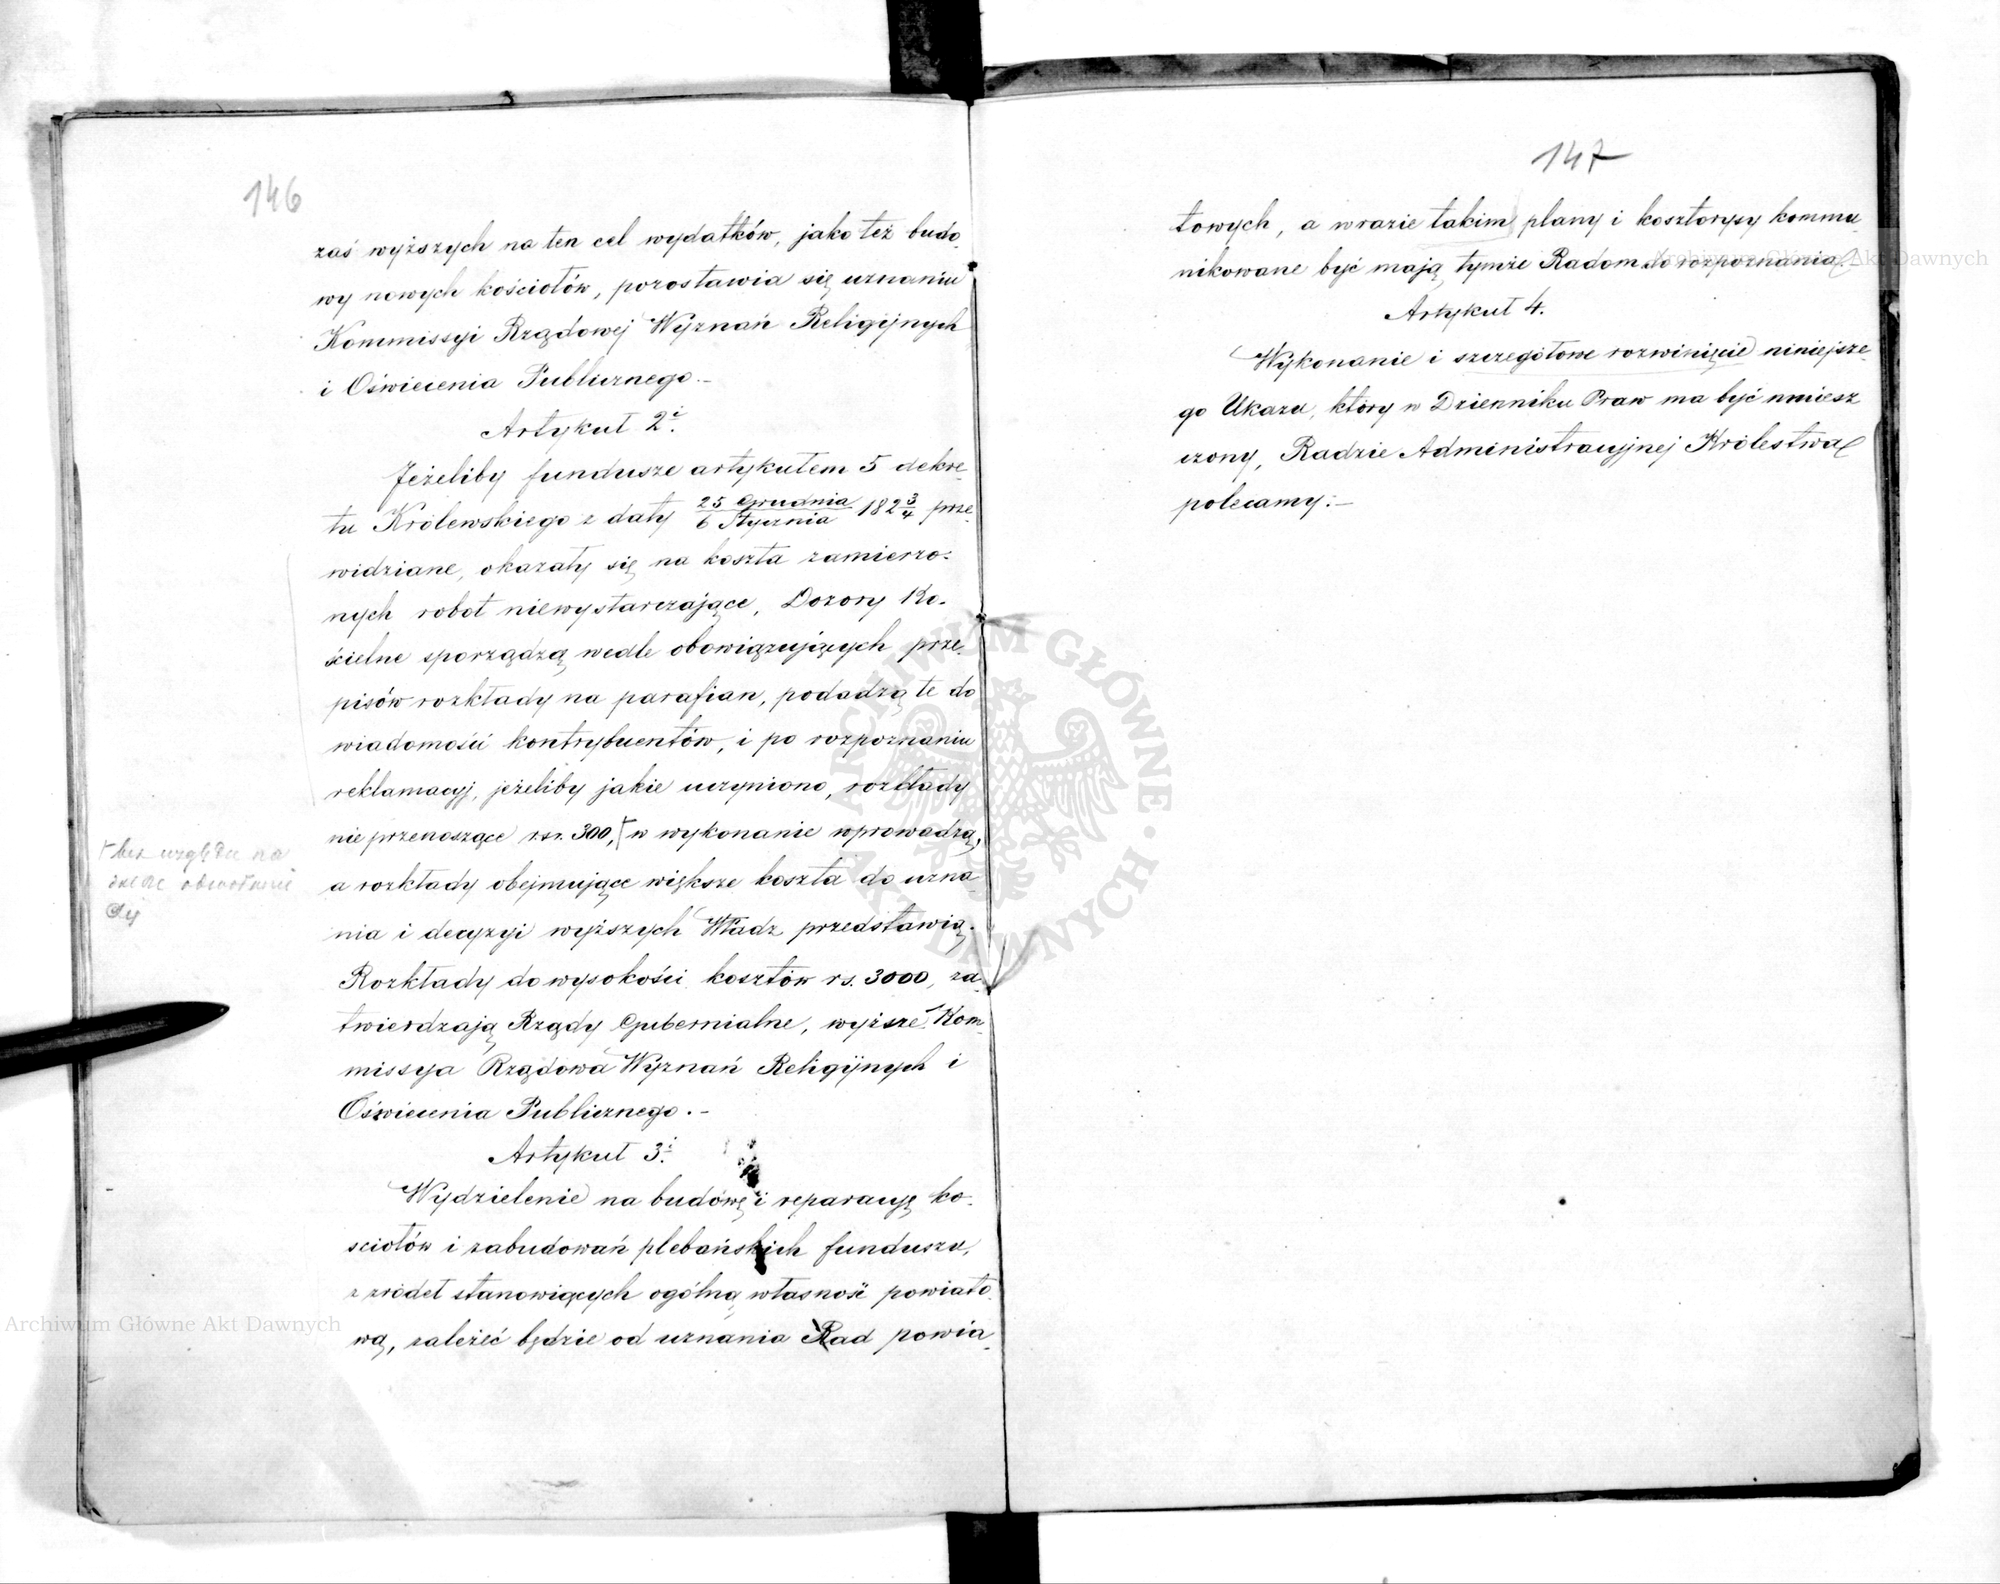 146
zaś wyższych na ten cel wydatków, jako też budo-
wy nowych kościołów, pozostawia się uznaniu
Kommissyi Rządowej Wyznań Religijnych
i Oświecenia Publicznego.-
Artykuł 2i.
Jeżeliby fundusze artykułem 5 dekre-
tu Królewskiego z daty 25 Grudnia / 6 Stycznia 182 3/4 prze-
widziane, okazały się na koszta zamierzo:
nych robot niewystarczające, Dozory Ko-
ścielne sporządzą wedle obowiązujących prze-
pisów rozkłady na parafian, podadzą te do
wiadomości kontrybuentów, i po rozpoznaniu
reklamacyj, jeżeliby jakie uczyniono, rozkłady
nie przenoszące rsr. 300, w wykonanie wprowadzą,
a rozkłady obejmujące większe koszta do uzna-
nia i decyzyi wyższych Władz przedstawią.
Rozkłady do wysokości kosztów rs. 3000, za-
twierdzają Rządy Gubernialne, wyższe Kom-
missya Rządowa Wyznań Religijnych i
Oświecenia Publicznego.-
Artykuł 3i.
Wydzielenie na budowę i reparacyę ko-
sciołów i zabudowań plebańskich funduszu,
z źródeł stanowiących ogólną własność powiato-
wą, zależeć będzie od uznania Rad powia-
bez względu na
147
towych, a w razie takim plany i kosztorysy kommu-
nikowane być mają tymże Radom do rozpoznania.
Artykuł 4.
Wykonanie i szczegółowe rozwinięcie niniejsze-
go Ukazu, który w Dzienniku Praw ma być umiesz
czony, Radzie Administracyjnej Królestwa
polecamy:-
ARCHIWUM GŁÓWNE AKT DAWNYCH
Archiwum Główne Akt Dawnych
Archiwum Główne Akt Dawnych